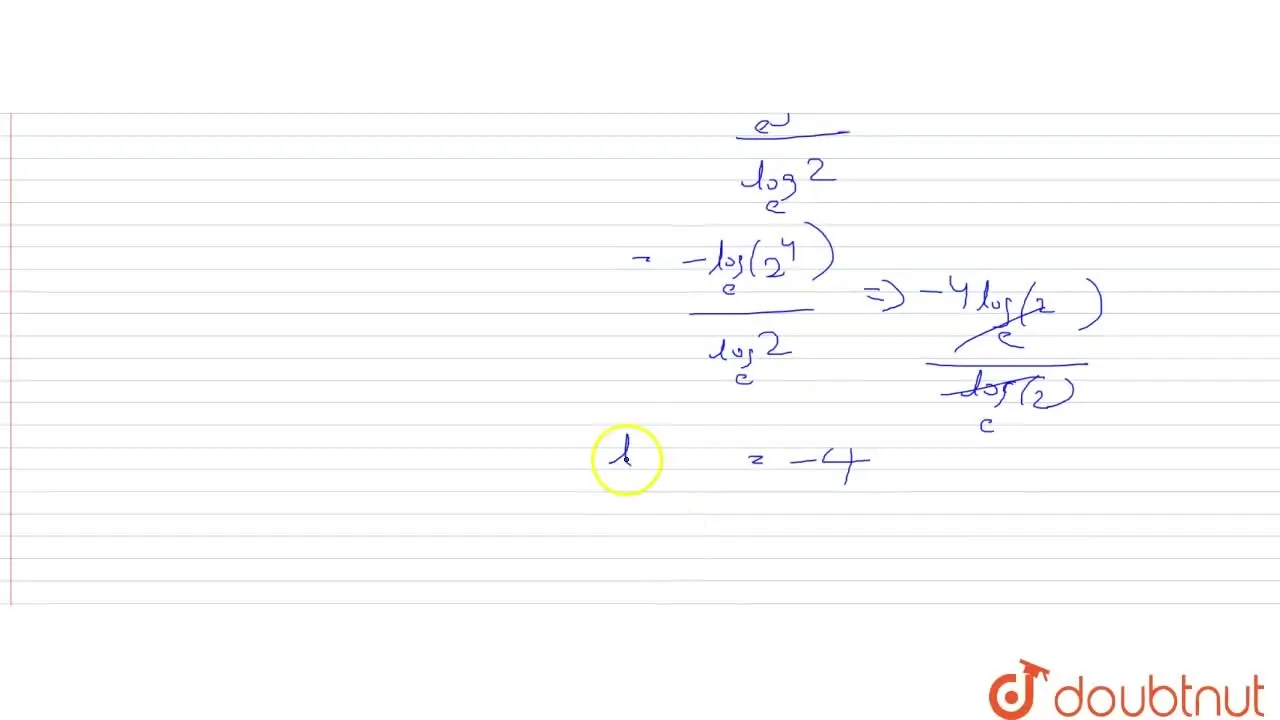 e
log_e 2
= -log_e(2^4) => -4 log_e(2)
log_e 2 log_e(2)
= -4
doubtnut